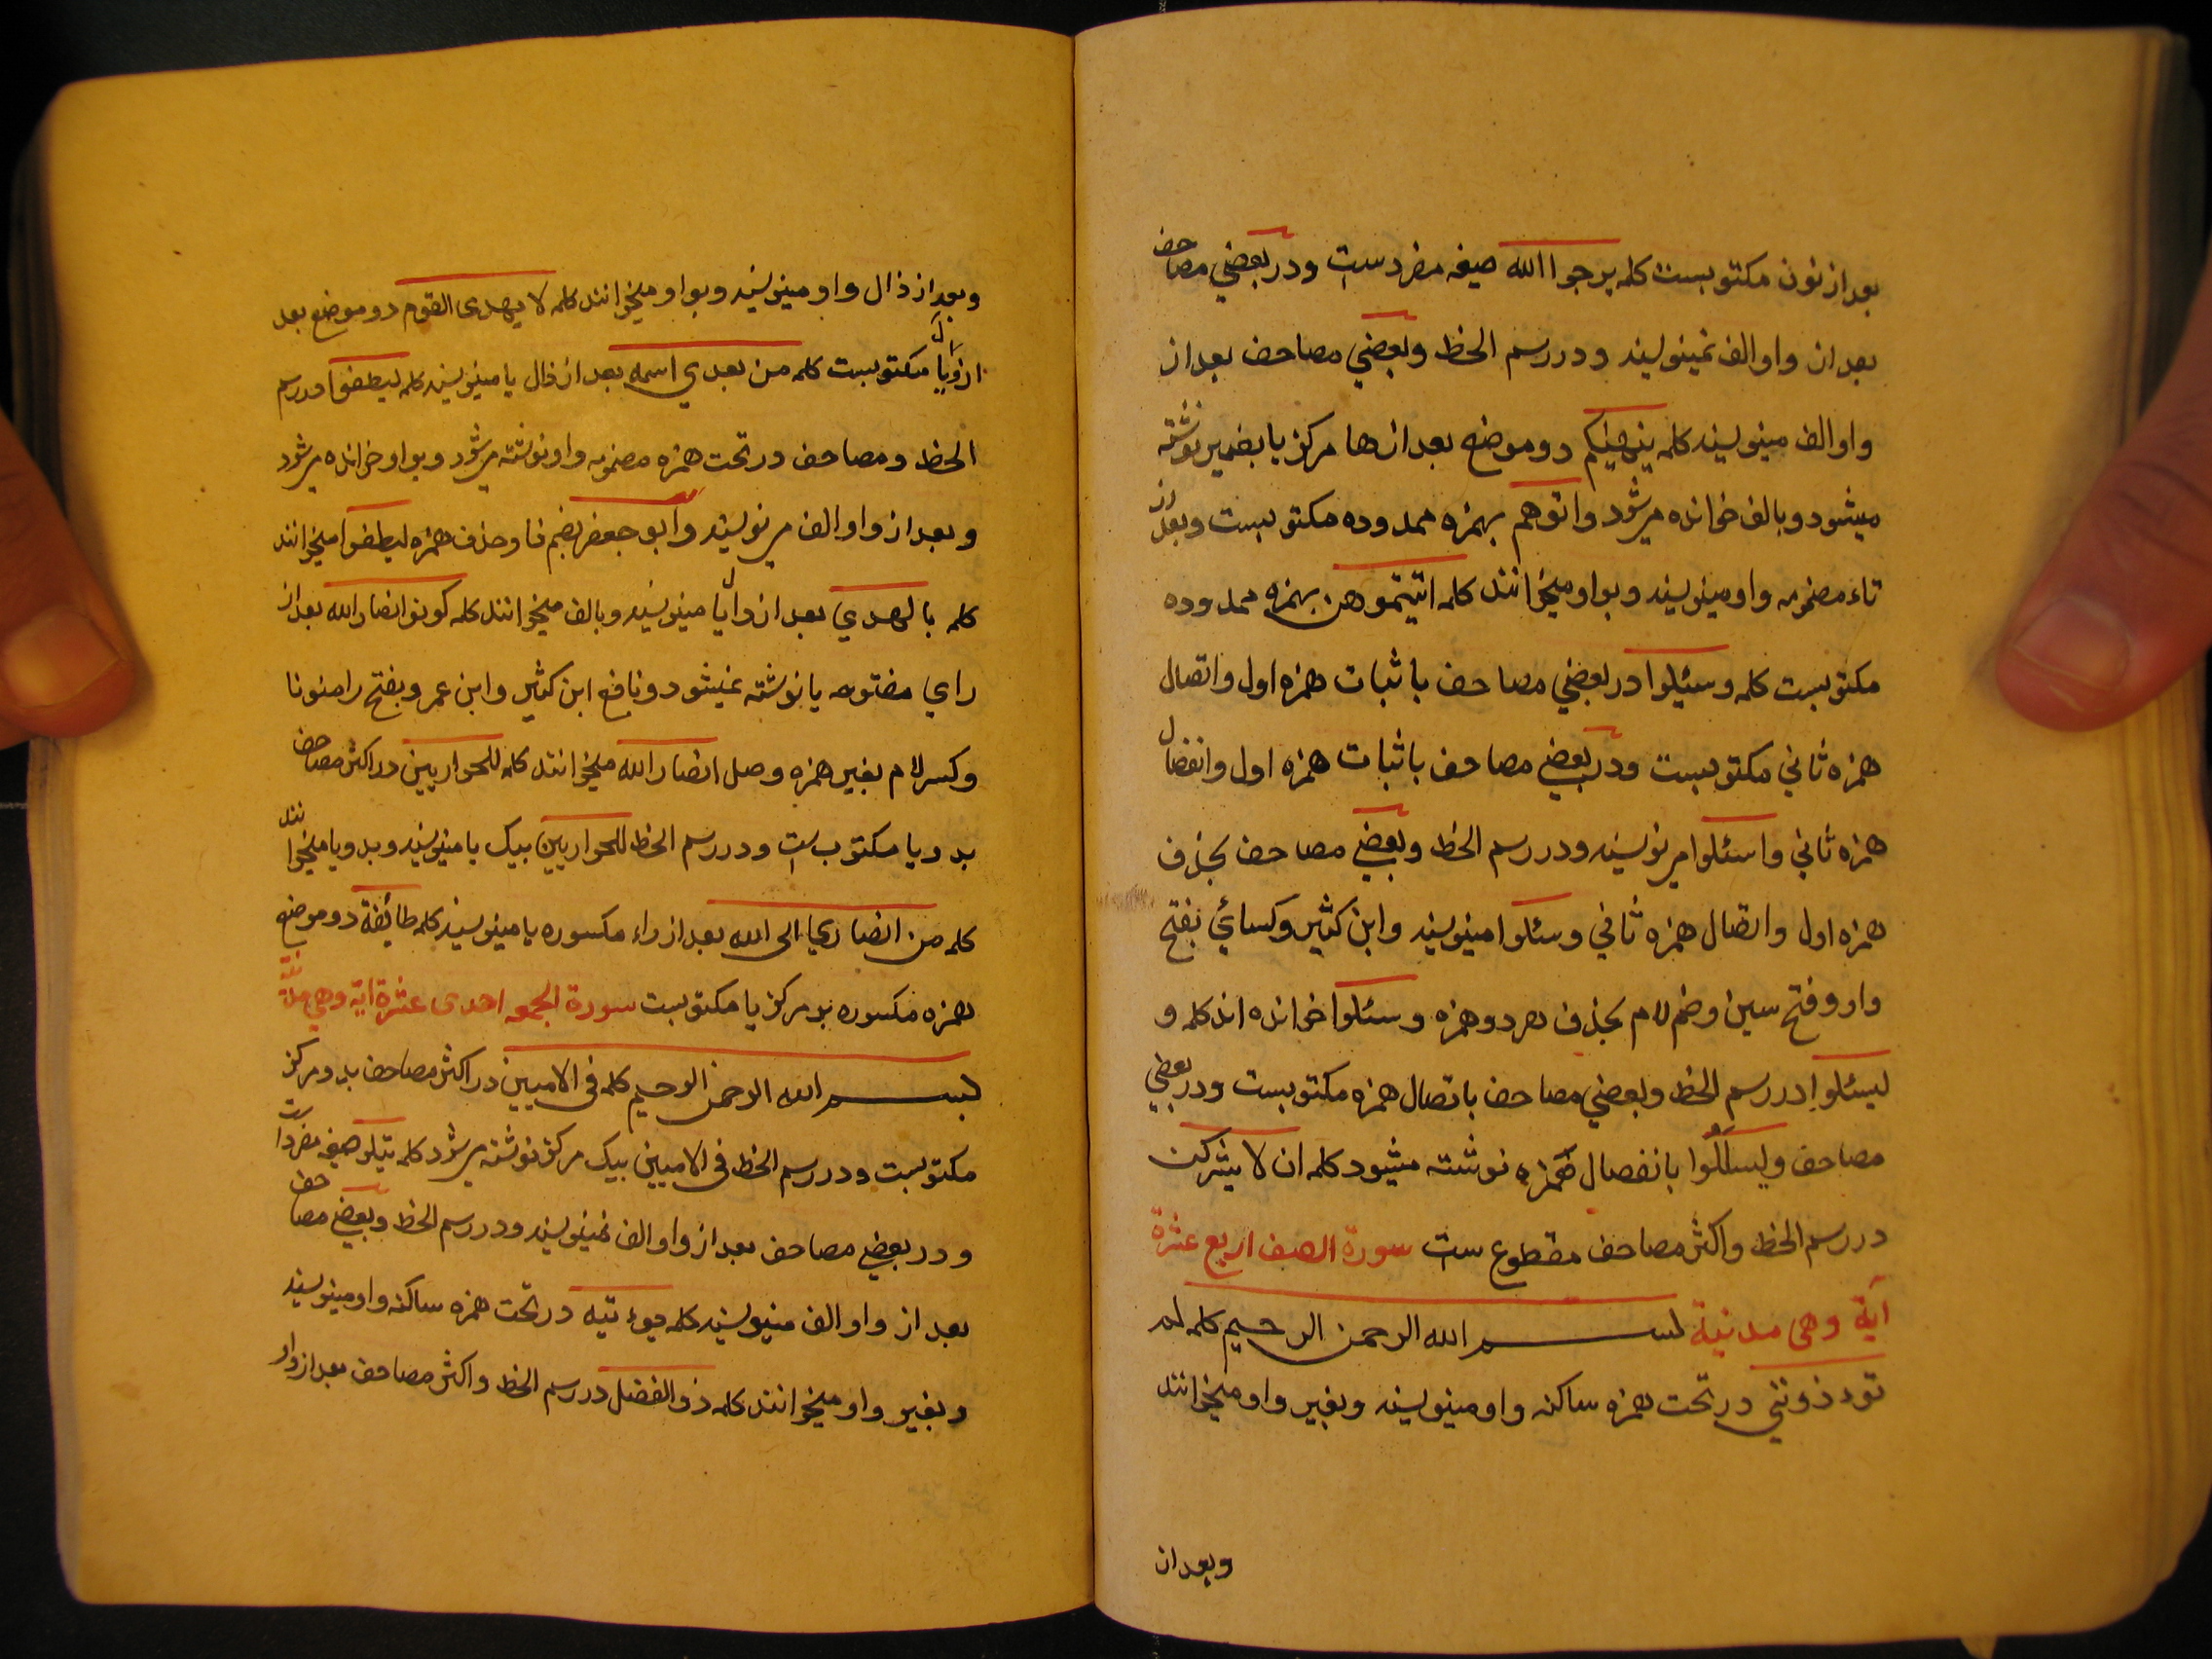 بعد از نون مکتوبست کلمه یرجوا الله صیغه مفردست ودر بعضی مصاحف
بعد از واو الف نمینویسند ودر رسم الخط وبعضی مصاحف بعد از
واو الف مینویسند کلمه ینهیٰکم دو موضع بعد از ها مرکز یا بغمیر نوشته
میشود وبالف خوانده میشود واتوهم بهمزه ممدوده مکتوبست وبعد از
تاء مضمومه واو مینویسند وبواو میخوانند کلمه اتیتموهن بهمزه ممدوده
مکتوبست کلمه وسئلوا در بعضی مصاحف باثبات همزه اول واتصال
همزه ثانی مکتوبست ودر بعضی مصاحف باثبات همزه اول وانفصال
همزه ثانی واسئلوا مینویسند ودر رسم الخط وبعضی مصاحف بحذف
همزه اول واتصال همزه ثانی وسئلوا مینویسند وابن کثیر وکسائی بفتح
واو وفتح سین وضم لام بحذف هردو همزه وسئلوا خوانده اند کلمه و
لیسئلوا در رسم الخط وبعضی مصاحف باتصال همزه مکتوبست ودر بعضی
مصاحف ولیسئلوا بانفصال همزه نوشته میشود کلمه ان لا یشرکن
در رسم الخط واکثر مصاحف مقطوع ست سورة الصف اربع عشرة
آیة وهی مدنیة بسم الله الرحمن الرحیم کلمه لم
تؤذوننی در تحت همزه ساکنه واو مینویسند وبغیر واو میخوانند
وبعد از
وبعد از ذال واو مینویسند وبواو میخوانند کلمه لا یهدی القوم دو موضع بعد
از دال یا مکتوبست کلمه من بعدی اسمه بعد از دال یا مینویسند کلمه لیطفوا در رسم
الخط ومصاحف در تحت همزه مضمومه واو نوشته میشود وبواو خوانده میشود
وبعد از واو الف مینویسند وابو جعفر بضم فا وحذف همزه لیطفوا میخوانند
کلمه بالهدی بعد از دال یا مینویسند وبالف میخوانند کلمه کونوا انصار الله بعد از
رای مفتوحه یا نوشته نمیشود ونافع ابن کثیر وابن عمرو بفتح را منونا
وکسر لام بغیر همزه وصل انصارا لله میخوانند کلمه للحواریین در اکثر مصاحف
بدو یا مکتوب ست ودر رسم الخط للحواریین بیک یا مینویسند وبدو یا میخوانند
کلمه من انصاری الی الله بعد از راء مکسوره یا مینویسند کلمه طائفة دو موضع
همزه مکسوره بر مرکز یا مکتوبست سورة الجمعه احدی عشرة ایة وهی مدنیة
بسم الله الرحمن الرحیم کلمه فی الامیین در اکثر مصاحف بدو مرکز
مکتوبست ودر رسم الخط فی الامیین بیک مرکز نوشته میشود کلمه یتلو صیغه مفرد است
ودر بعضی مصاحف بعد از واو الف نمینویسند ودر رسم الخط وبعضی مصاحف
بعد از واو الف مینویسند کلمه یؤتیه در تحت همزه ساکنه واو مینویسند
وبغیر واو میخوانند کلمه ذو الفضل در رسم الخط واکثر مصاحف بعد از واو